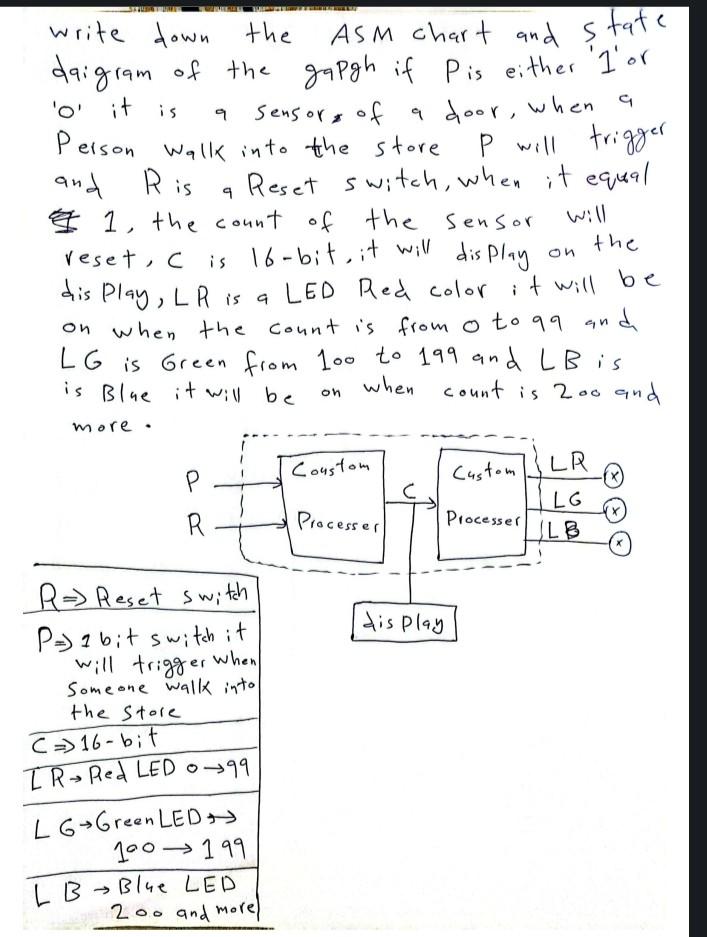 write down the ASM chart and state
daigram of the gapgh if P is either '1' or
'0' it is a sensor, of a door, when a
Person walk into the store P will trigger
and R is a Reset switch, when it equal
1, the count of the sensor will
reset, C is 16-bit, it will display on the
disPlay, LR is a LED Red color it will be
on when the count is from 0 to 99 and
LG is Green from 100 to 199 and LB is
is Blue it will be on when count is 200 and
more.
P
R
Coustom
Processer
C
Custom
Processer
LR
LG
LB
disPlay
R⇒ Reset switch
P⇒ 1 bit switch it
will trigger when
Someone walk into
the store
C⇒16-bit
LR→Red LED 0→99
LG→Green LED→
100→199
LB→Blue LED
200 and more